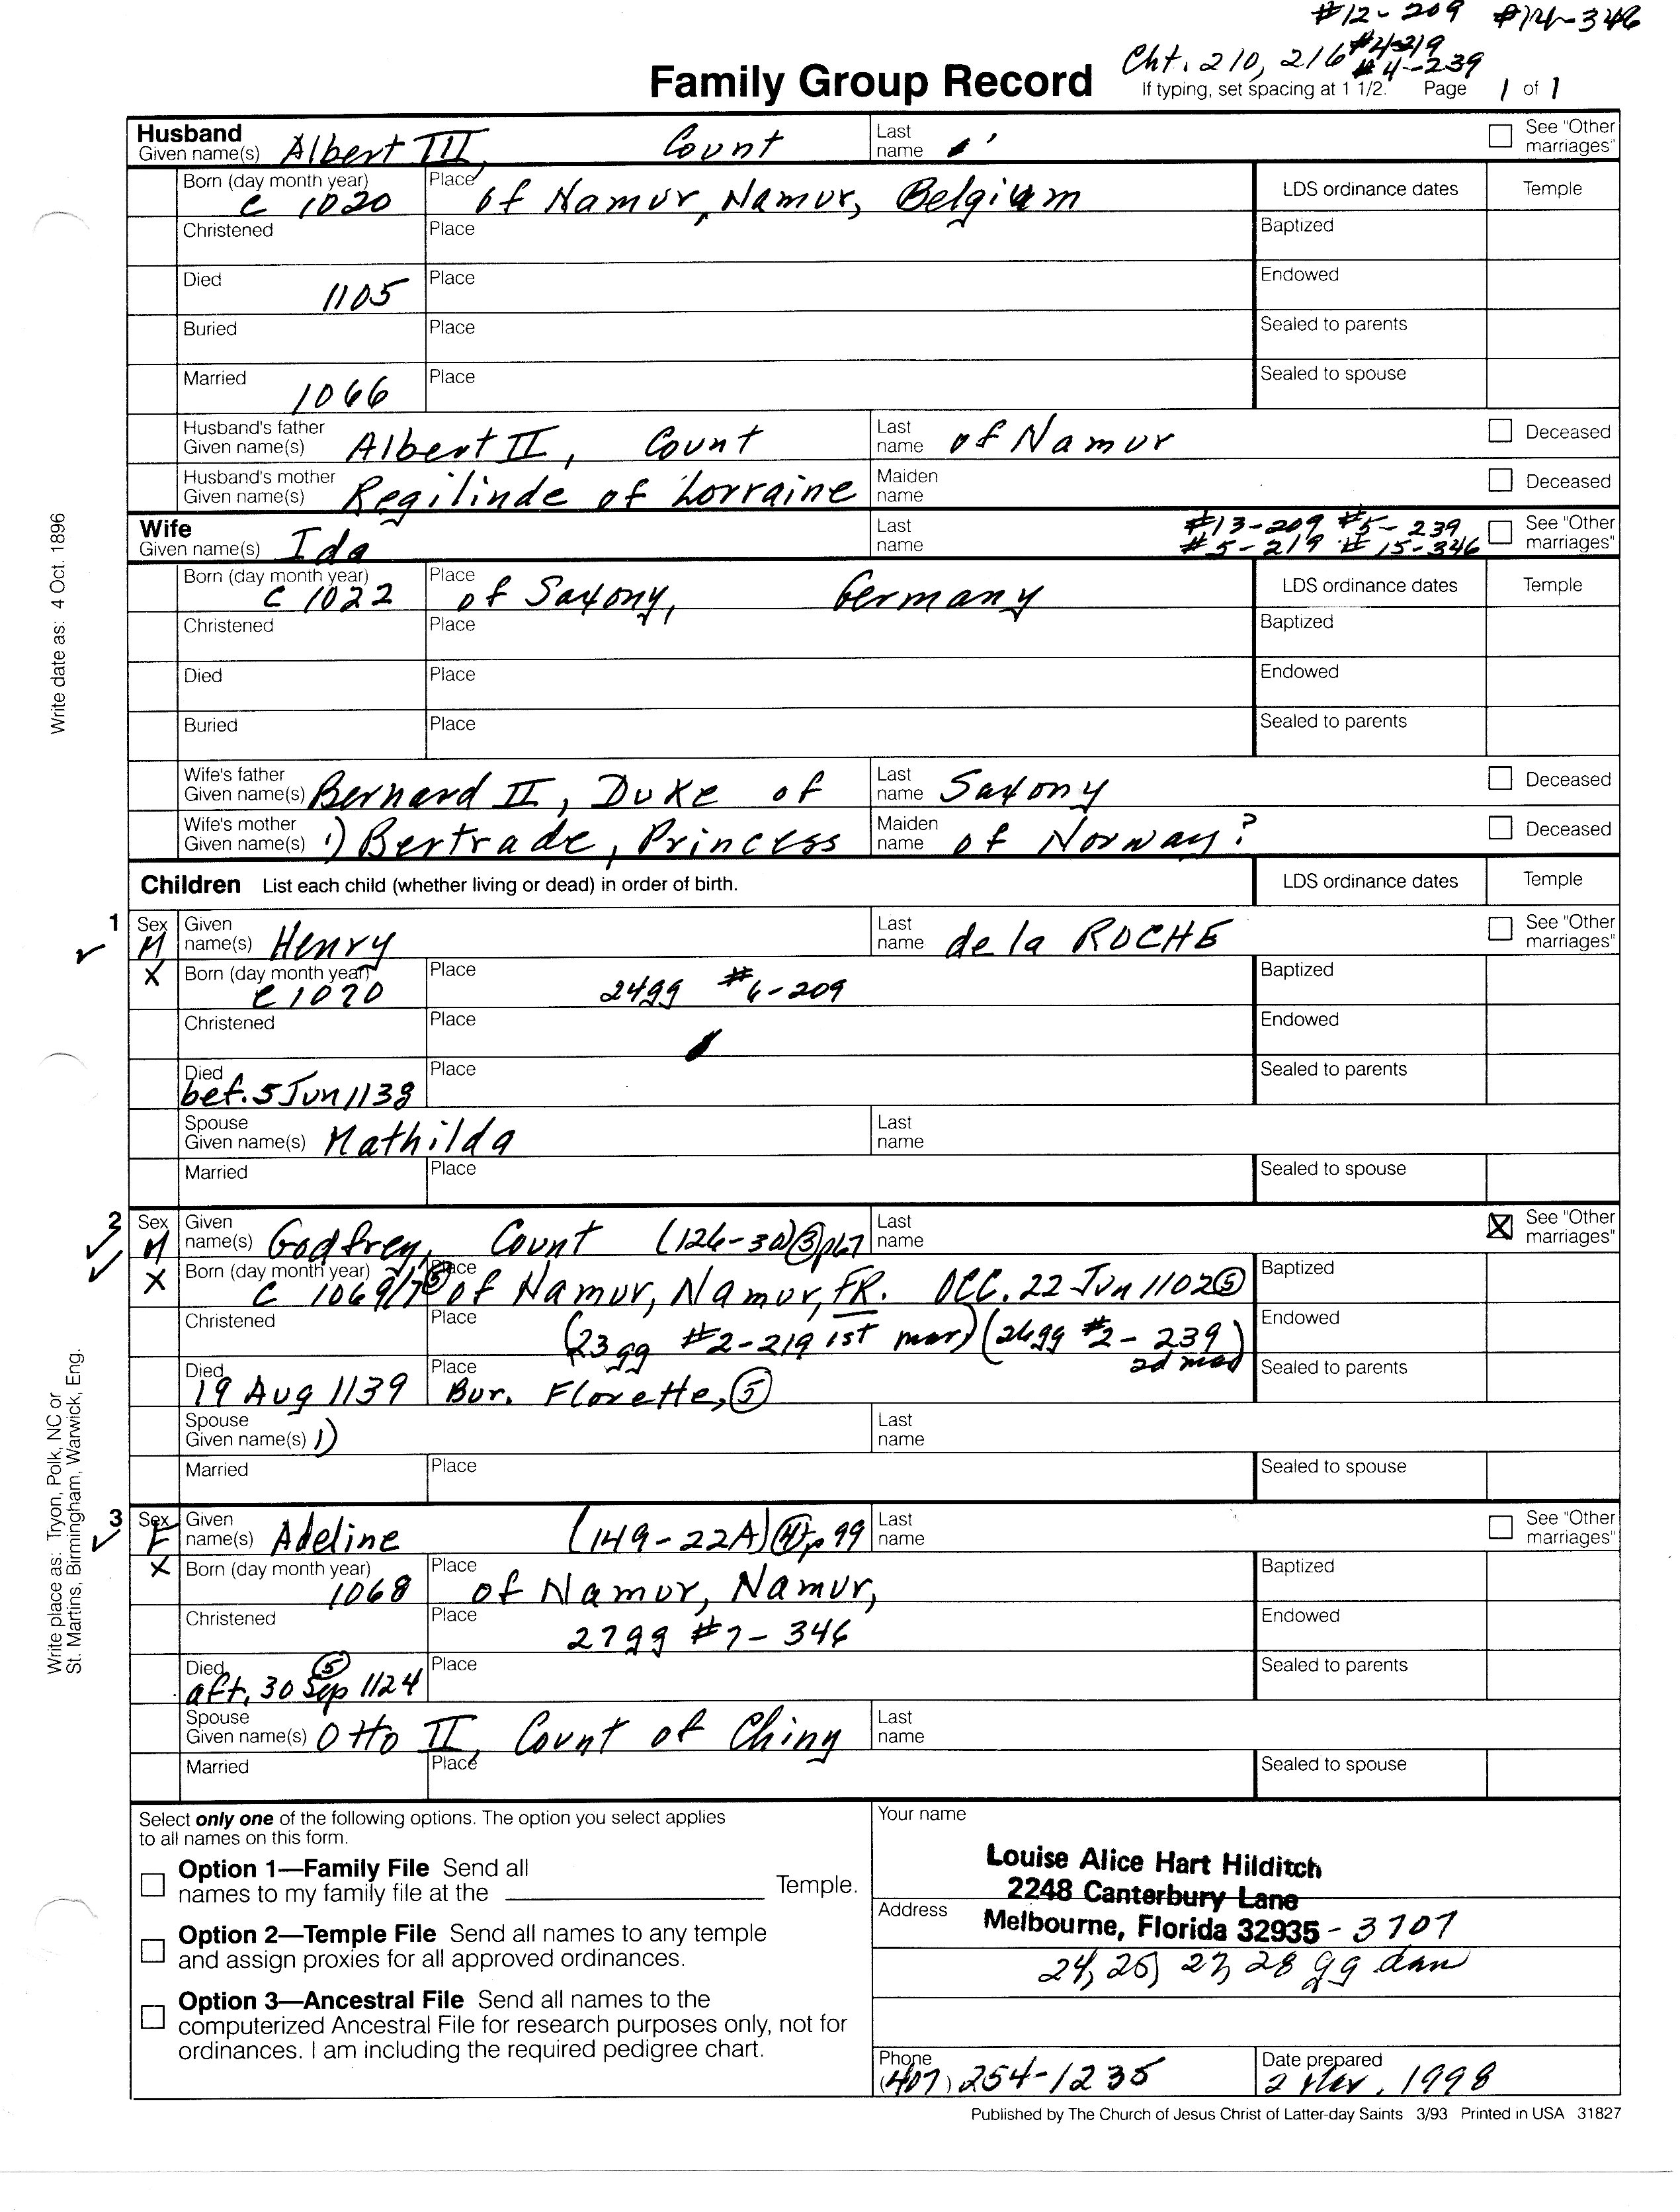 #12-209 #14-346
Cht. 210, 216 #4-219
#4-239
Family Group Record
If typing, set spacing at 1 1/2. Page 1 of 1
Husband
Given name(s) Albert III, Count Last name
See "Other marriages"
Born (day month year) c 1020 Place of Namur, Namur, Belgium LDS ordinance dates Temple
Christened Place Baptized
Died 1105 Place Endowed
Buried Place Sealed to parents
Married 1066 Place Sealed to spouse
Husband's father Given name(s) Albert II, Count Last name of Namur Deceased
Husband's mother Given name(s) Regilinde of Lorraine Maiden name Deceased
Wife
Given name(s) Ida Last name #13-209 #5-239
#5-219 #15-346 See "Other marriages"
Born (day month year) c 1022 Place of Saxony, Germany LDS ordinance dates Temple
Christened Place Baptized
Died Place Endowed
Buried Place Sealed to parents
Wife's father Given name(s) Bernard II, Duke of Last name Saxony Deceased
Wife's mother Given name(s) 1) Bertrade, Princess Maiden name of Norway? Deceased
Children List each child (whether living or dead) in order of birth. LDS ordinance dates Temple
1 Sex M Given name(s) Henry Last name de la ROCHE See "Other marriages"
X Born (day month year) c 1070 Place 24gg #6-209 Baptized
Christened Place Endowed
Died bef. 5 Jun 1138 Place Sealed to parents
Spouse Given name(s) Mathilda Last name
Married Place Sealed to spouse
2 Sex M Given name(s) Godfrey, Count (126-30) 3 p67 Last name X See "Other marriages"
X Born (day month year) c 1069/7 5 Place of Namur, Namur, FR. OCC. 22 Jun 1102 5 Baptized
Christened Place (23gg #2-219 1st mar) (24gg #2-239 2d mar) Endowed
Died 19 Aug 1139 Place Bur. Florette, 5 Sealed to parents
Spouse Given name(s) 1) Last name
Married Place Sealed to spouse
3 Sex F Given name(s) Adeline (149-22A) 4 p 99 Last name See "Other marriages"
X Born (day month year) 1068 Place of Namur, Namur, Baptized
Christened Place 27gg #7-346 Endowed
Died aft. 30 Sep 1124 5 Place Sealed to parents
Spouse Given name(s) Otto II, Count of Chiny Last name
Married Place Sealed to spouse
Select only one of the following options. The option you select applies
to all names on this form.
Option 1—Family File Send all
names to my family file at the Temple.
Option 2—Temple File Send all names to any temple
and assign proxies for all approved ordinances.
Option 3—Ancestral File Send all names to the
computerized Ancestral File for research purposes only, not for
ordinances. I am including the required pedigree chart.
Your name
Louise Alice Hart Hilditch
2248 Canterbury Lane
Address
Melbourne, Florida 32935-3707
24, 25, 27, 28 gg dau
Phone (407) 254-1235
Date prepared 2 Mar. 1998
Published by The Church of Jesus Christ of Latter-day Saints 3/93 Printed in USA 31827
Write date as: 4 Oct. 1896
Write place as: Tryon, Polk, NC or
St. Martins, Birmingham, Warwick, Eng.